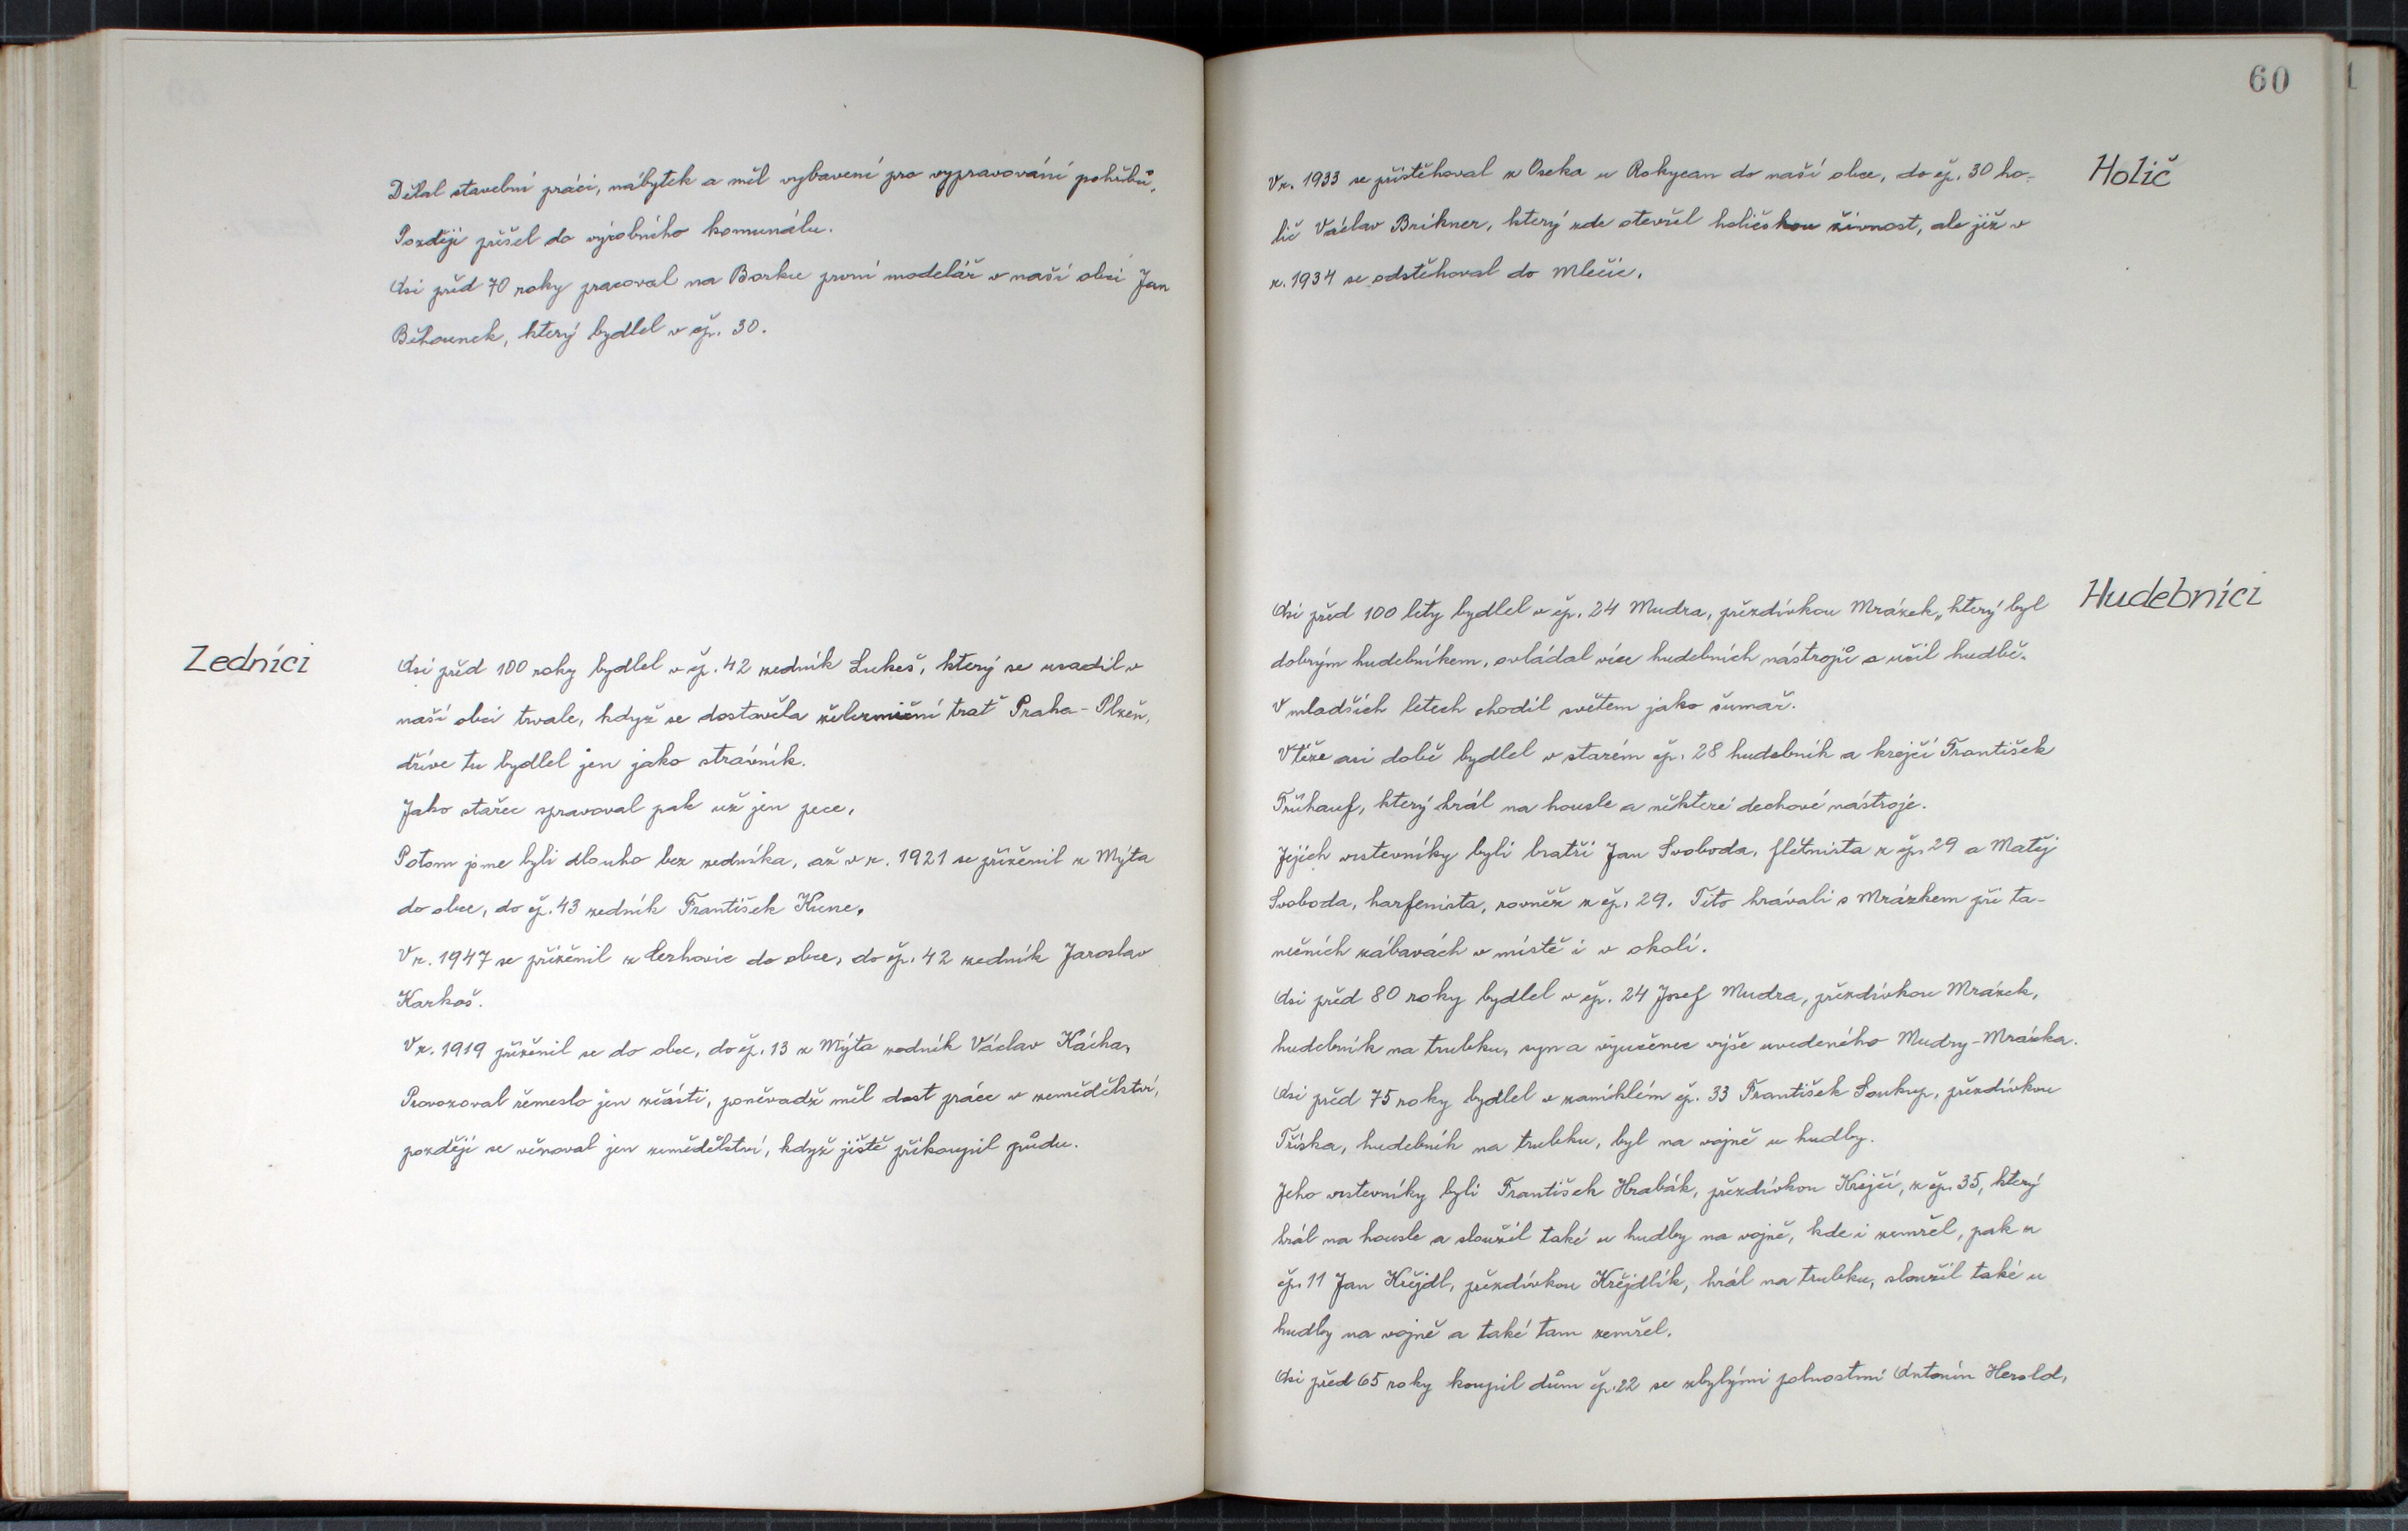 Dělal stavební práci, nábytek a měl vybavení pro vypravování pohřbů.
Později přišel do výrobního komunálu.
Asi před 70 roky pracoval na Borku první modelář v naší obci Jan
Běhounek, který bydlel v čp. 30.
Zedníci
Asi před 100 roky bydlel v čp. 42 zedník Lukeš, který se usadil v
naší obci trvale, když se dostavěla železniční trať Praha - Plzeň,
dříve tu bydlel jen jako strávník.
Jako stařec spravoval pak už jen pece.
Potom jsme byli dlouho bez zedníka, až v r. 1921 se přiženil z Mýta
do obce, do čp. 43 zedník František Kunc.
V r. 1947 se přiženil z Cerhovic do obce, do čp. 42 zedník Jaroslav
Karkoš.
V r. 1919 přiženil se do obce, do čp. 13 z Mýta zedník Václav Kácha.
Provozoval řemeslo jen zčásti, poněvadž měl dost práce v zemědělství,
později se věnoval jen zemědělství, když ještě přikoupil půdu.
60
Holič
V r. 1933 se přistěhoval z Oseka u Rokycan do naší obce, do čp. 30 ho-
lič Václav Brikner, který zde otevřel holičskou živnost, ale již v
r. 1934 se odstěhoval do Mlečic.
Hudebníci
Asi před 100 lety bydlel v čp. 24 Mudra, přezdívkou Mrázek, který byl
dobrým hudebníkem, ovládal více hudebních nástrojů a učil hudbě.
V mladších letech chodil světem jako šumař.
V téže asi době bydlel v starém čp. 28 hudebník a krejčí František
Frühauf, který hrál na housle a některé dechové nástroje.
Jejich vrstevníky byli bratři Jan Svoboda, flétnista z čp. 29 a Matěj
Svoboda, harfenista, rovněž z čp. 29. Tito hrávali s Mrázkem při ta-
nečních zábavách v místě i v okolí.
Asi před 80 roky bydlel v čp. 24 Josef Mudra, přezdívkou Mrázek,
hudebník na trubku, syn a vyučenec výše uvedeného Mudry-Mrázka.
Asi před 75 roky bydlel v zaniklém čp. 33 František Soukup, přezdívkou
Tříska, hudebník na trubku, byl na vojně u hudby.
Jeho vrstevníky byli František Hrabák, přezdívkou Krejčí, z čp. 35, který
hrál na housle a sloužil také u hudby na vojně, kde i zemřel, pak z
čp. 11 Jan Křejdl, přezdívkou Křejdlík, hrál na trubku, sloužil také u
hudby na vojně a také tam zemřel.
Asi před 65 roky koupil dům čp. 22 se zbylými polnostmi Antonín Herold,